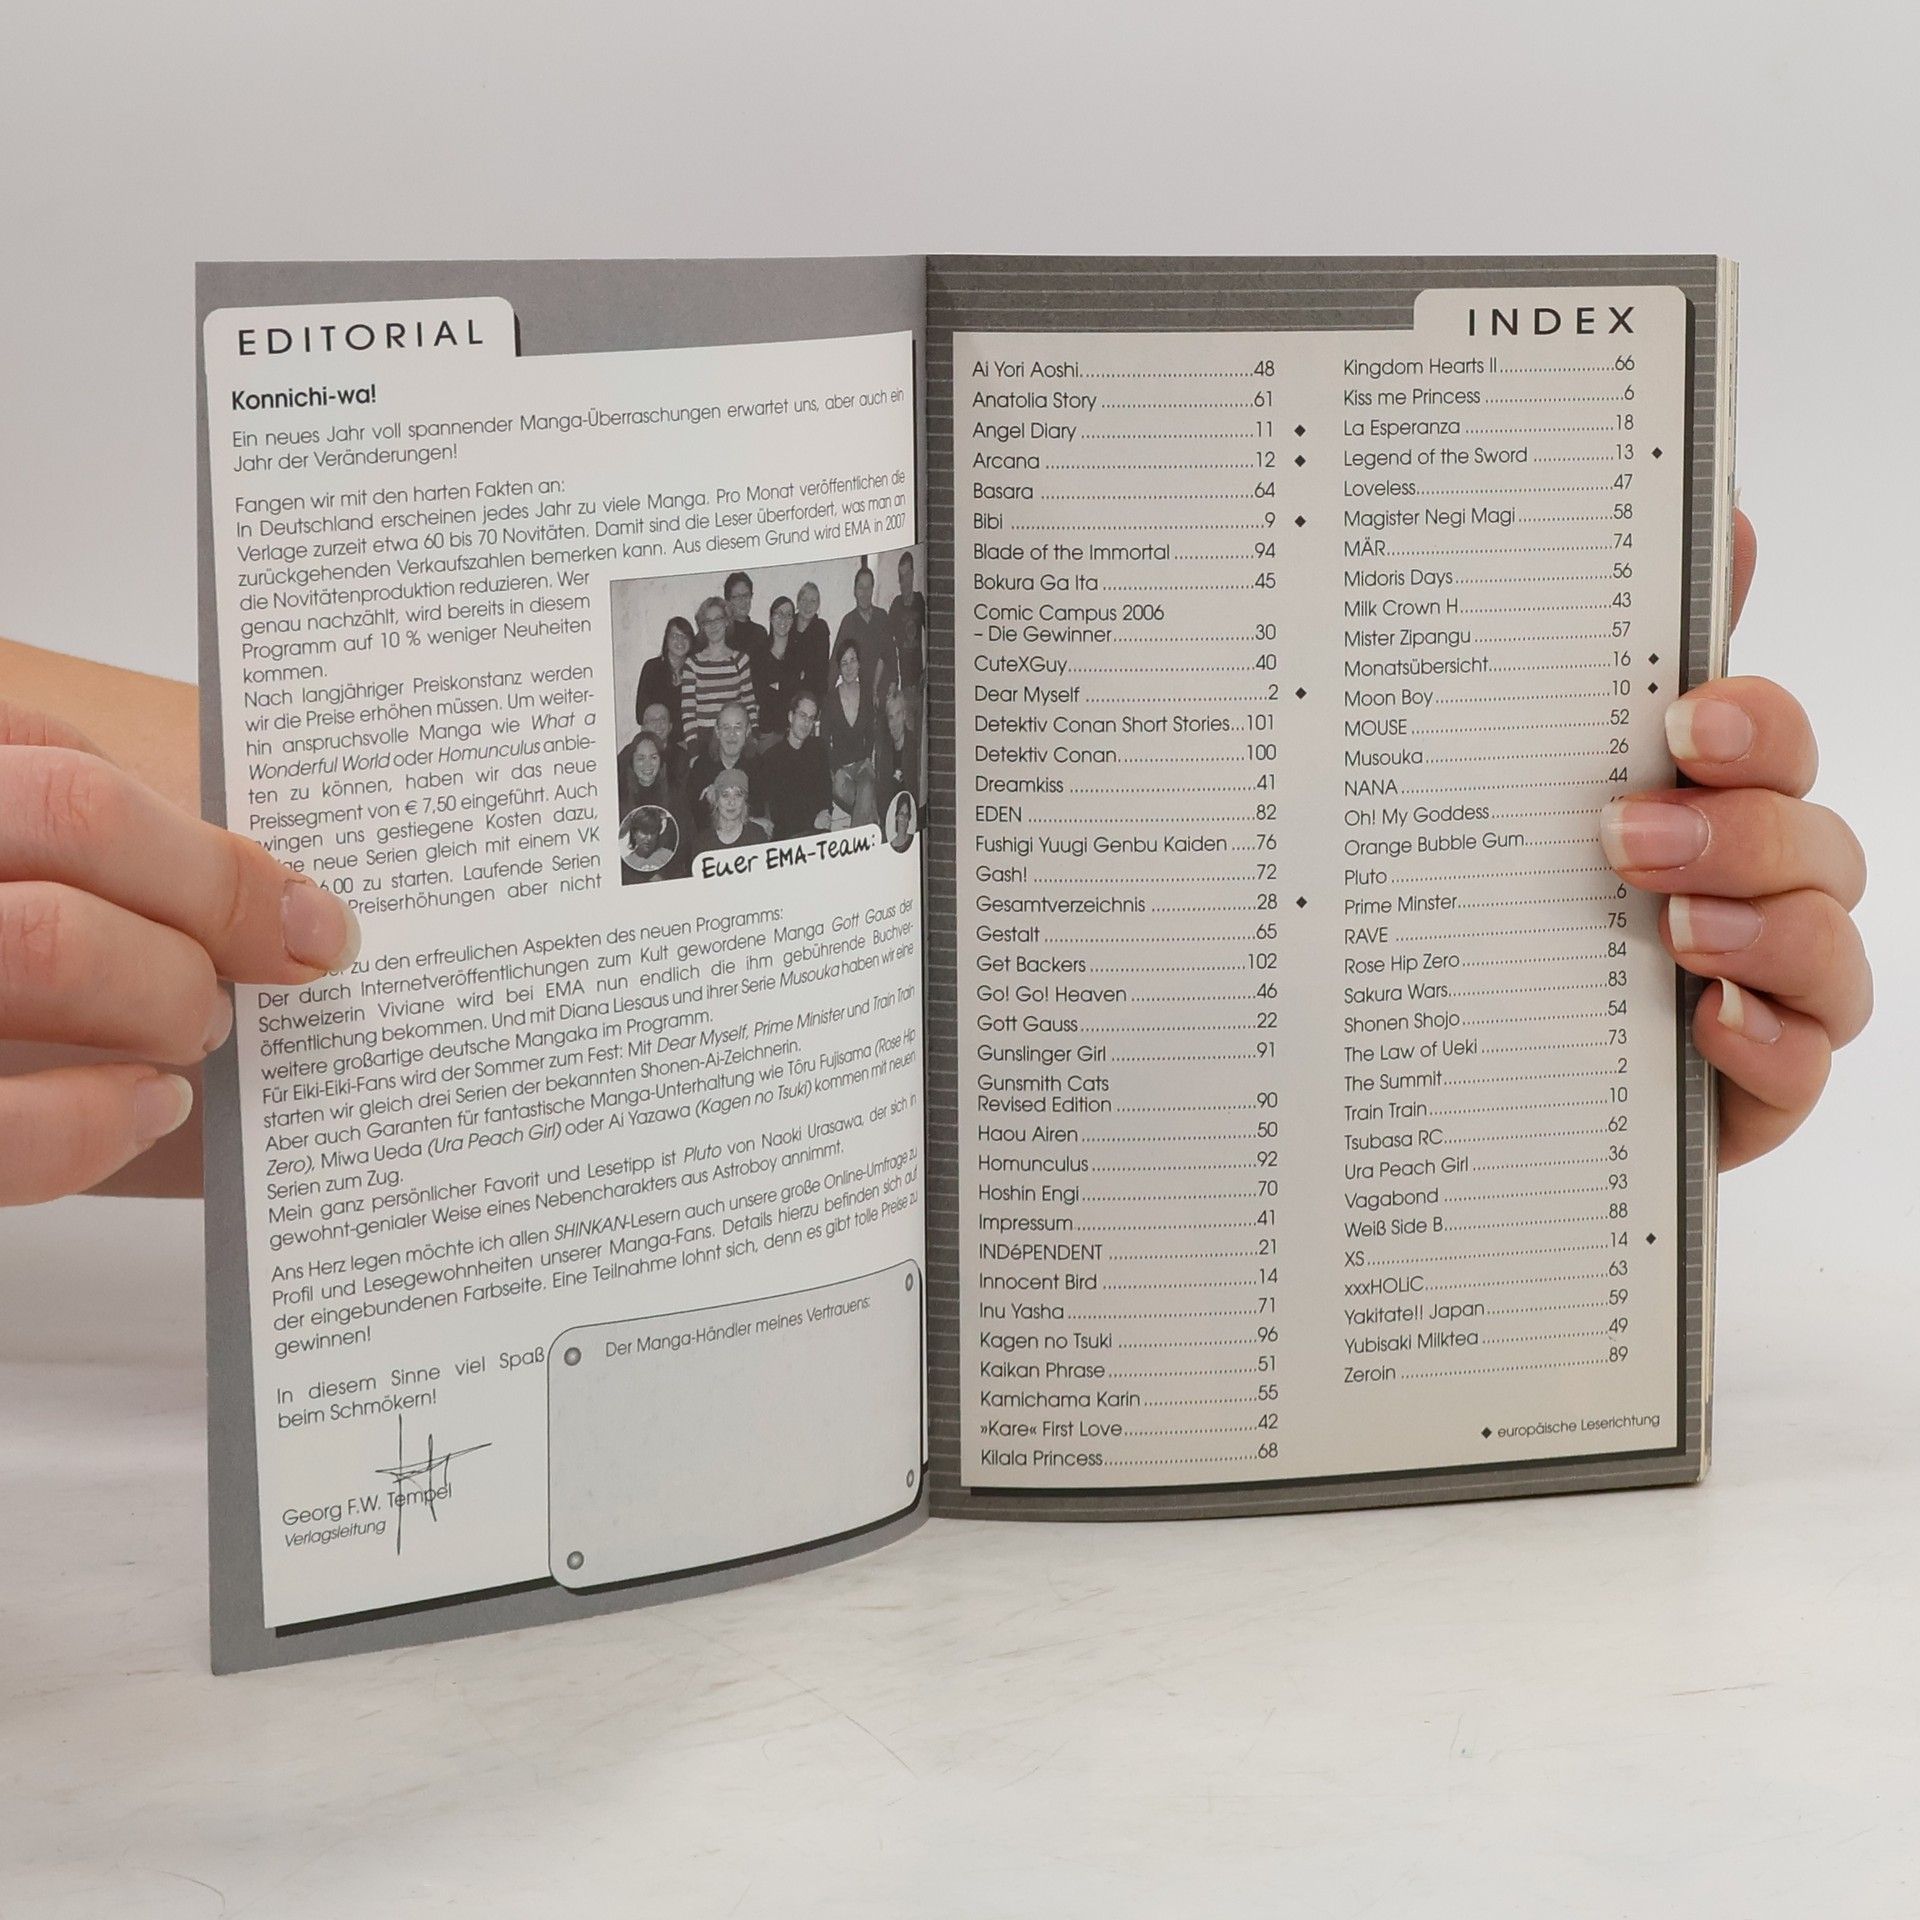 EDITORIAL
Konnichi-wa!
Ein neues Jahr voll spannender Manga-Überraschungen erwartet uns, aber auch ein
Jahr der Veränderungen!
Fangen wir mit den harten Fakten an:
In Deutschland erscheinen jedes Jahr zu viele Manga. Pro Monat veröffentlichen die
Verlage zurzeit etwa 60 bis 70 Novitäten. Damit sind die Leser überfordert, was man an
zurückgehenden Verkaufszahlen bemerken kann. Aus diesem Grund wird EMA in 2007
die Novitätenproduktion reduzieren. Wer
genau nachzählt, wird bereits in diesem
Programm auf 10 % weniger Neuheiten
kommen.
Nach langjähriger Preiskonstanz werden
wir die Preise erhöhen müssen. Um weiter-
hin anspruchsvolle Manga wie What a
Wonderful World oder Homunculus anbie-
ten zu können, haben wir das neue
Preissegment von € 7,50 eingeführt. Auch
wingen uns gestiegene Kosten dazu,
ge neue Serien gleich mit einem VK
6,00 zu starten. Laufende Serien
Preiserhöhungen aber nicht
Euer EMA-Team:
zu den erfreulichen Aspekten des neuen Programms:
Der durch Internetveröffentlichungen zum Kult gewordene Manga Gott Gauss der
Schweizerin Viviane wird bei EMA nun endlich die ihm gebührende Buchver-
öffentlichung bekommen. Und mit Diana Liesaus und ihrer Serie Musouka haben wir eine
weitere großartige deutsche Mangaka im Programm.
Für Eiki-Eiki-Fans wird der Sommer zum Fest: Mit Dear Myself, Prime Minister und Train Train
starten wir gleich drei Serien der bekannten Shonen-Ai-Zeichnerin.
Aber auch Garanten für fantastische Manga-Unterhaltung wie Tōru Fujisama (Rose Hip
Zero), Miwa Ueda (Ura Peach Girl) oder Ai Yazawa (Kagen no Tsuki) kommen mit neuen
Serien zum Zug.
Mein ganz persönlicher Favorit und Lesetipp ist Pluto von Naoki Urasawa, der sich in
gewohnt-genialer Weise eines Nebencharakters aus Astroboy annimmt.
Ans Herz legen möchte ich allen SHINKAN-Lesern auch unsere große Online-Umfrage zu
Profil und Lesegewohnheiten unserer Manga-Fans. Details hierzu befinden sich auf
der eingebundenen Farbseite. Eine Teilnahme lohnt sich, denn es gibt tolle Preise zu
gewinnen!
In diesem Sinne viel Spaß
beim Schmökern!
Georg F.W. Tempel
Verlagsleitung
Der Manga-Händler meines Vertrauens:
INDEX
Ai Yori Aoshi................................48
Anatolia Story ............................61
Angel Diary ................................11 ◆
Arcana .......................................12 ◆
Basara ........................................64
Bibi ..............................................9 ◆
Blade of the Immortal ...............94
Bokura Ga Ita ............................45
Comic Campus 2006
– Die Gewinner..........................30
CuteXGuy...................................40
Dear Myself .................................2 ◆
Detektiv Conan Short Stories...101
Detektiv Conan........................100
Dreamkiss ..................................41
EDEN ..........................................82
Fushigi Yuugi Genbu Kaiden .....76
Gash! .........................................72
Gesamtverzeichnis ....................28 ◆
Gestalt .......................................65
Get Backers .............................102
Go! Go! Heaven ........................46
Gott Gauss.................................22
Gunslinger Girl ...........................91
Gunsmith Cats
Revised Edition ..........................90
Haou Airen ................................50
Homunculus ...............................92
Hoshin Engi................................70
Impressum..................................41
INDéPENDENT ............................21
Innocent Bird .............................14
Inu Yasha ...................................71
Kagen no Tsuki ..........................96
Kaikan Phrase ............................51
Kamichama Karin ......................55
»Kare« First Love.........................42
Kilala Princess.............................68
Kingdom Hearts II.......................66
Kiss me Princess ..........................6
La Esperanza .............................18
Legend of the Sword .................13 ◆
Loveless......................................47
Magister Negi Magi...................58
MÄR............................................74
Midoris Days...............................56
Milk Crown H..............................43
Mister Zipangu ...........................57
Monatsübersicht.........................16 ◆
Moon Boy ..................................10 ◆
MOUSE .......................................52
Musouka.....................................26
NANA .........................................44
Oh! My Goddess........................
Orange Bubble Gum.................
Pluto ..........................................
Prime Minster..............................6
RAVE ..........................................75
Rose Hip Zero.............................84
Sakura Wars...............................83
Shonen Shojo.............................54
The Law of Ueki .........................73
The Summit..................................2
Train Train...................................10
Tsubasa RC.................................62
Ura Peach Girl ...........................36
Vagabond .................................93
Weiß Side B.................................88
XS................................................14 ◆
xxxHOLiC....................................63
Yakitate!! Japan.........................59
Yubisaki Milktea .........................49
Zeroin .........................................89
◆ europäische Leserichtung